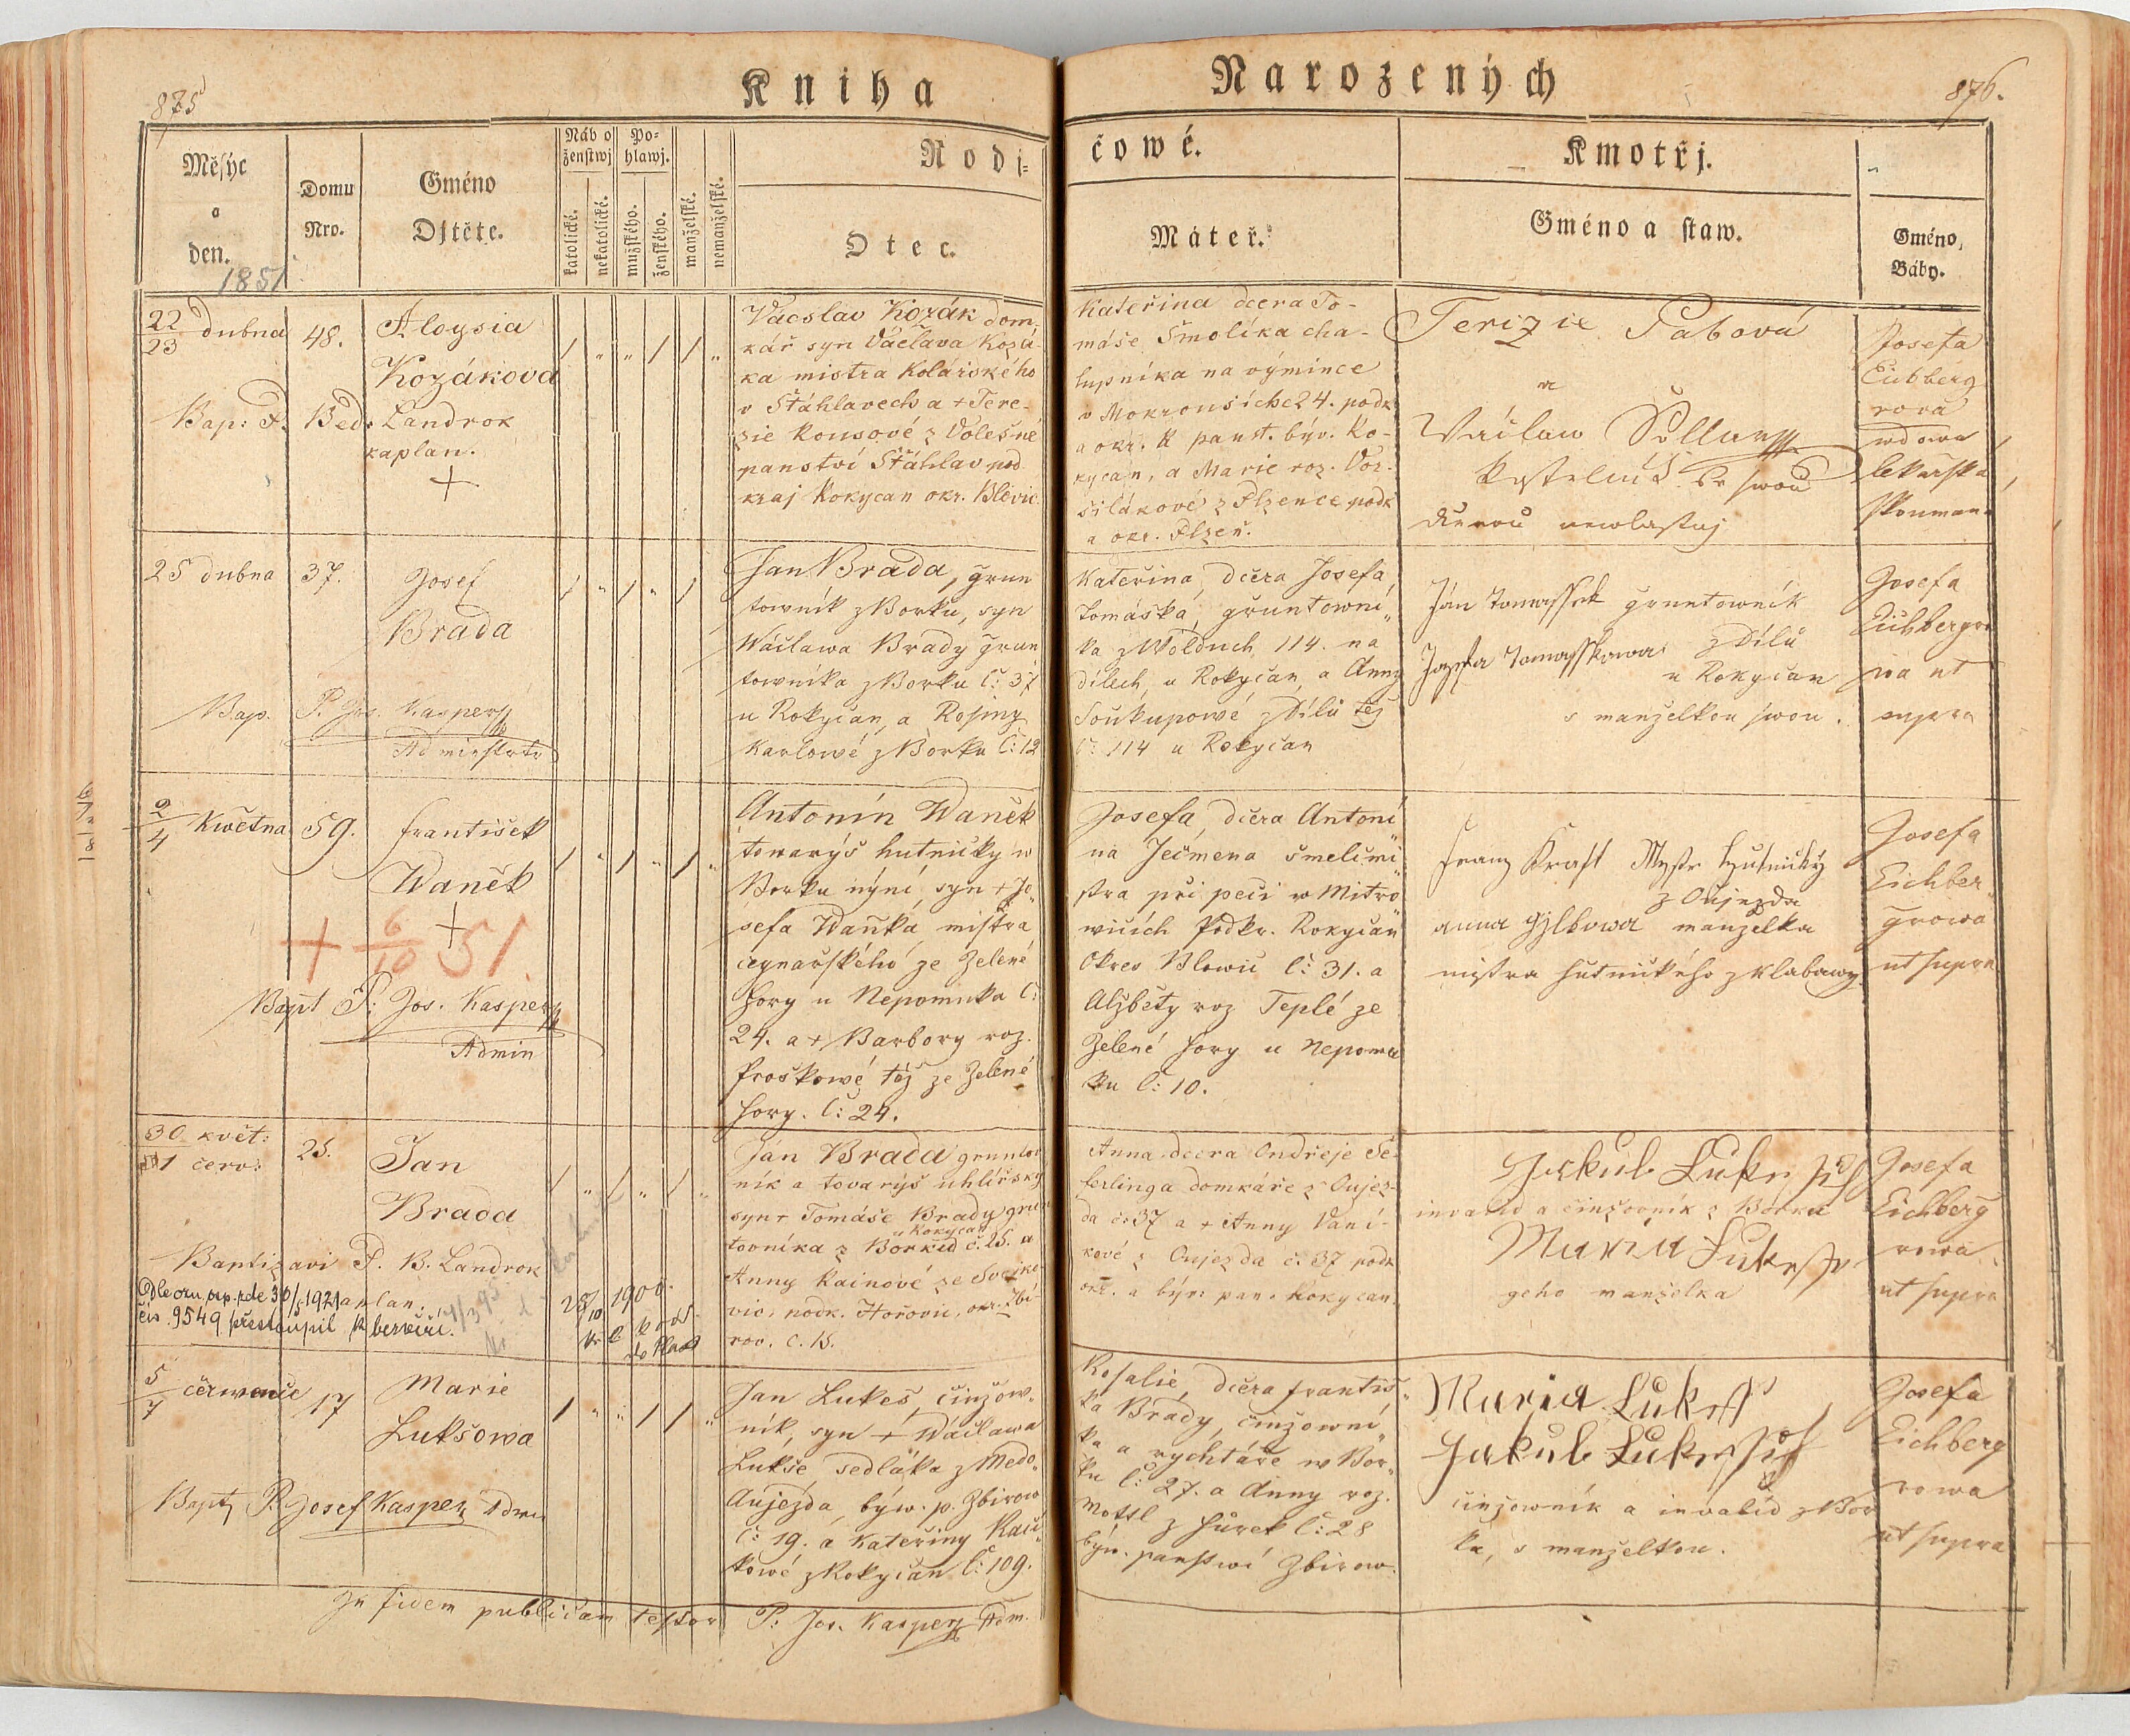 875
Kniha
Narozených
876.
Měsýc
a
den.
1851
Domu
Nro.
Gméno
Djtěte.
Nábo
ženstwj
katolické.
nekatolické.
Po-
hlawj.
mužského.
ženského.
manželské.
nemanželské.
Rodj-
čowé.
Otec.
Máteř.
Kmotřj.
Gméno a staw.
Gméno,
Báby.
22
23
dubna
48.
Aloysia
Kozákova
Bap: P. Bed. Landrok
kaplan.
Vácslav Kozák dom,
kář syn Václava Kozá-
ka mistra kolářského
v Šťáhlavech a + Tere-
zie Kousové z Volešné
panství Šťáhlav pod
kraj Rokycan okr. Blovic.
Kateřina dcera To-
máše Smolíka cha-
lupníka na výmince
v Mokrousích č 24. podk
a okr. R panst. býv. Ro-
kycan, a Marie roz. Vor-
šilákové z Plzence podk
a okr. Plzeň.
Terizie Pabová
a
Wáclaw
kostelník se swou
dcerou
Josefa
Eichberg
rová
wdowa
lekařská
skouman
25 dubna
37.
Josef
Brada
Bap. P. Jos. Kaspery
Administr
Jan Brada, grun
towník z Borku, syn
Wáclawa Brady grun
towníka z Borku č: 37
u Rokycan, a Rosiny
Karlowé z Borku č: 12
Kateřina, dcera Josefa
Tomáška, gruntowní
ka z Wolduch 114. na
dílech, u Rokycan, a Anny
Soukupowé z Dílů též
č: 114 u Rokycan
Ján Tomassek gruntowník
z Dílů
Jozefa Tomasskowa
u Rokycan
s manželkou swou.
Josefa
Eichbergro
wa ut
supra
2
4
Května
59.
František
Waněk
+ 6/10 51.
Bapt P: Jos. Kaspery
Admin
Antonín Waněk
towaryš hutnický w
Borku nyní, syn + Jo
sefa Waňka, mistra
cegnařského ze Zelené
hory u Nepomuka č:
24. a + Barbory roz.
Froškowé též ze Zelené
hory. č: 24.
Josefa, dcera Antoní
na Ječmena šmelcmi
stra při peci w Mitro
wicích Podkr. Rokycan
Okres Blowic č: 31. a
Alžběty roz Teplé ze
Zelené hory u Nepomu
ku č: 10.
Franz Kraft Mistr Hutnický
z Oujezda
anna manželka
mistra hutnického z Klabawy
Josefa
Eichber
growa
ut supra
30 květ:
1 červ:
25.
Jan
Brada
Baptizavi P. B. Landrok
kaplan.
Dle ozn. okr. p. ze dne 30/5 1921
čís. 9549 přestoupil k bezvěří.
28/10 1900.
Ján Brada gruntov
ník a tovaryš uhlířský
syn + Tomáše Brady grun
u Rokycan
tovníka z Borku č. 25. a
Anny Kainové ze Svejko
vic, podk. Hořovic, okr. Zbi
rov. č. 15.
Anna dcera Ondřeje Še-
ferlinga domkáře z Oujez-
da č. 37 a + Anny Vaní-
kové z Oujezda č. 37 podk
okr. a býv. pan. Rokycan.
Jakub Lukessch
invalid a činžovník z Borku
Maria Lukessch
geho manželka
Josefa
Eichberg
rowa
ut supra
5
7
čerwence
17
Marie
Lukšowa
Bapt P. Josef Kaspery Adm
Jan Lukeš, činžow
ník, syn + Wáclawa
Lukše, sedláka z Medo
Aujezda, býw. p. Zbirow
č: 19. a Kateřiny Rači
kowé z Rokycan č: 109.
Rosalie, dcera Františ
ka Brády, činžowní
ka a rychtáře w Bor
ku č: 27. a Anny roz.
Mottl z Hůrek č: 28
býw. panstwí Zbirow.
Maria Lukess
Jakub Lukessch
činžowník a invalid z Bor
ku, s manželkou.
Josefa
Eichberg
rowa
ut supra
In fidem publicam testor P: Jos. Kaspery Adm.